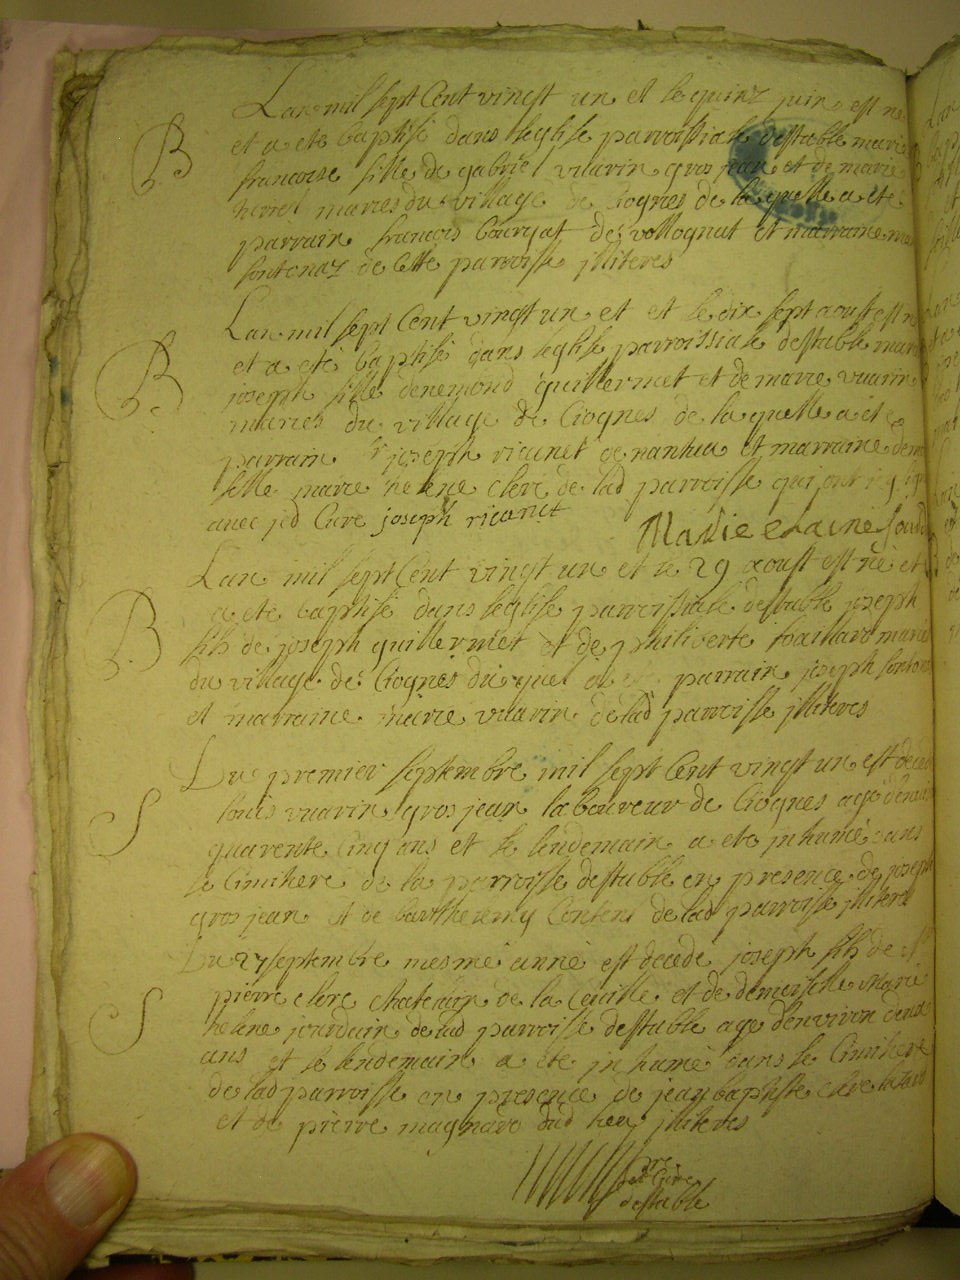 B
Lan mil sept Cent vingt un et le quinz juin est né
et a ete baptisé dans leglise parroissiale destable marie
francoise fille de gabriel vuarin gros jean et de marie
maries du village de Ciognes de laquelle a ete
parrain françois bourgat de vollognat et marraine
de Cette parroisse illiteres
B
Lan mil sept Cent vingt un et et le dix sept aoust est n
et a eté baptisé dans leglise parroissiale destable marie
joseph fille denemond guillermet et de marie vuarin
maries du village de Ciognes de laquelle a ete
parrain Sr joseph ricanet de nantua et marraine demoi
selle marie helene clerc de lad parroisse qui ont icy sig
avec jed Cure joseph ricanet
B
Lan mil sept Cent vingt un et le 29 aoust est né et
a ete baptisé dans leglise parroissiale destable joseph
fils de joseph guillermet et de philiberte baillard maries
du village de Ciognes du quel a ete parrain joseph
et marraine marie vuarin de lad parroisse illiteres
S
Du premier septembre mil sept Cent vingt un est deced
louis vuarin gros jean laboureur de Ciognes age denviron
quarente Cinq ans et le lendemain a ete inhumé dans
le Cimitiere de la parroisse destable en presence de joseph
gros jean et de barthelemy de lad parroisse illiteres
S
Du 27 septembre mesme anné est decede joseph fils de Sr
pierre clerc chatelain de la et de demoiselle marie
helene jourdain de lad parroisse destable age denviron deux
ans et le lendemain a ete inhumé dans le Cimitiere
de lad parroisse en presence de jean baptiste clerc
et de pierre magnard dud lieu illiteres
Cure
destable